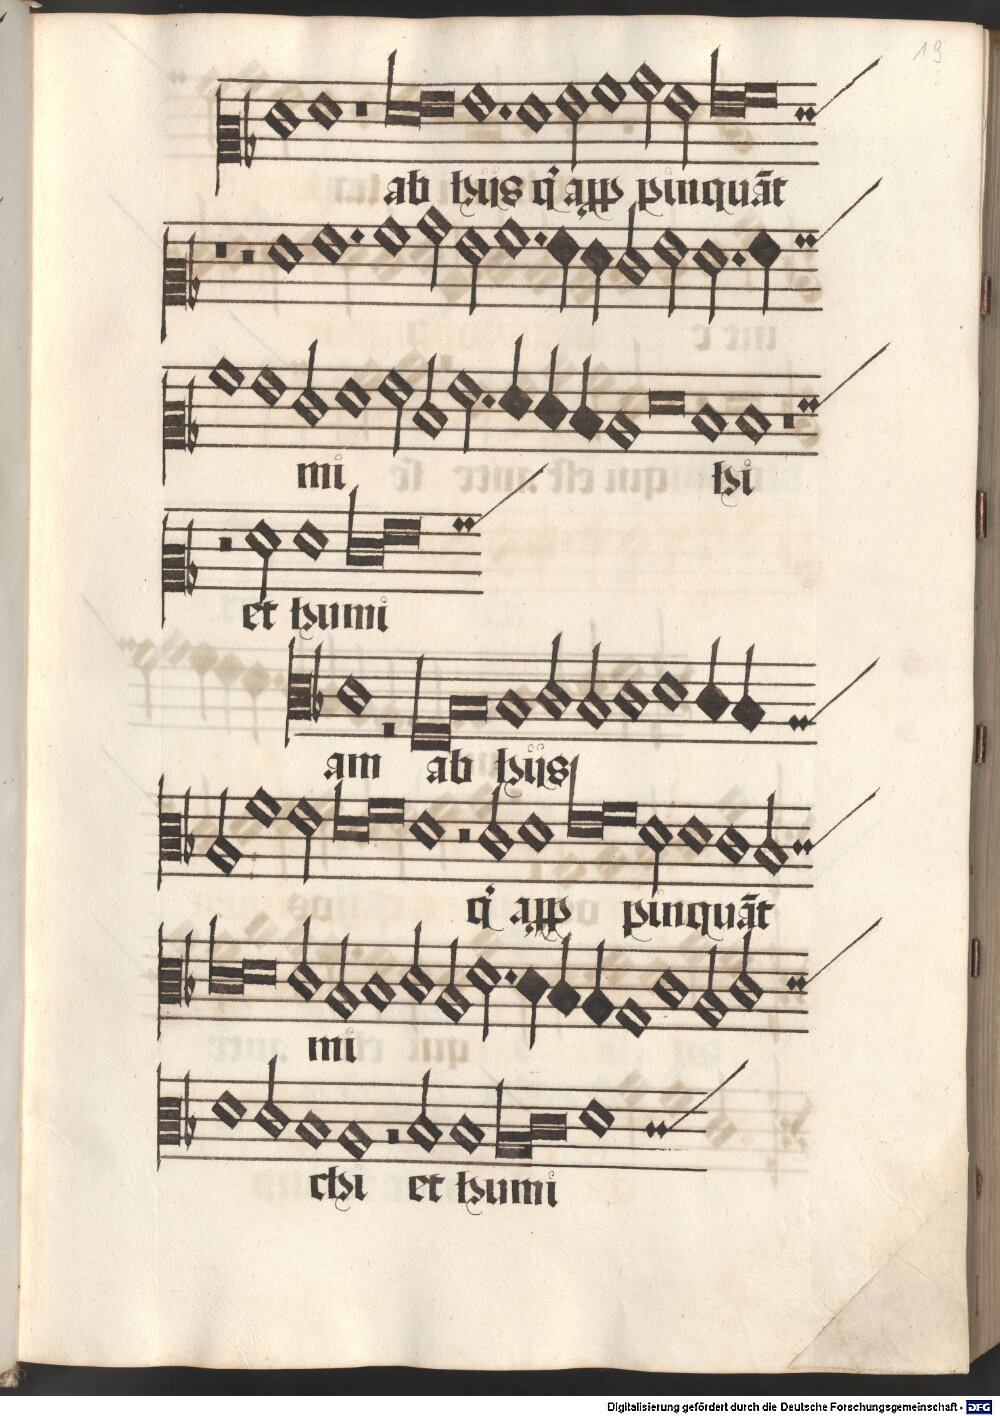 19
ab hijs q̇ app pinquāt
mi hi
et humi
am ab hijs
q̇ app pinquāt
mi
chi et humi
Digitalisierung gefördert durch die Deutsche Forschungsgemeinschaft - DFG